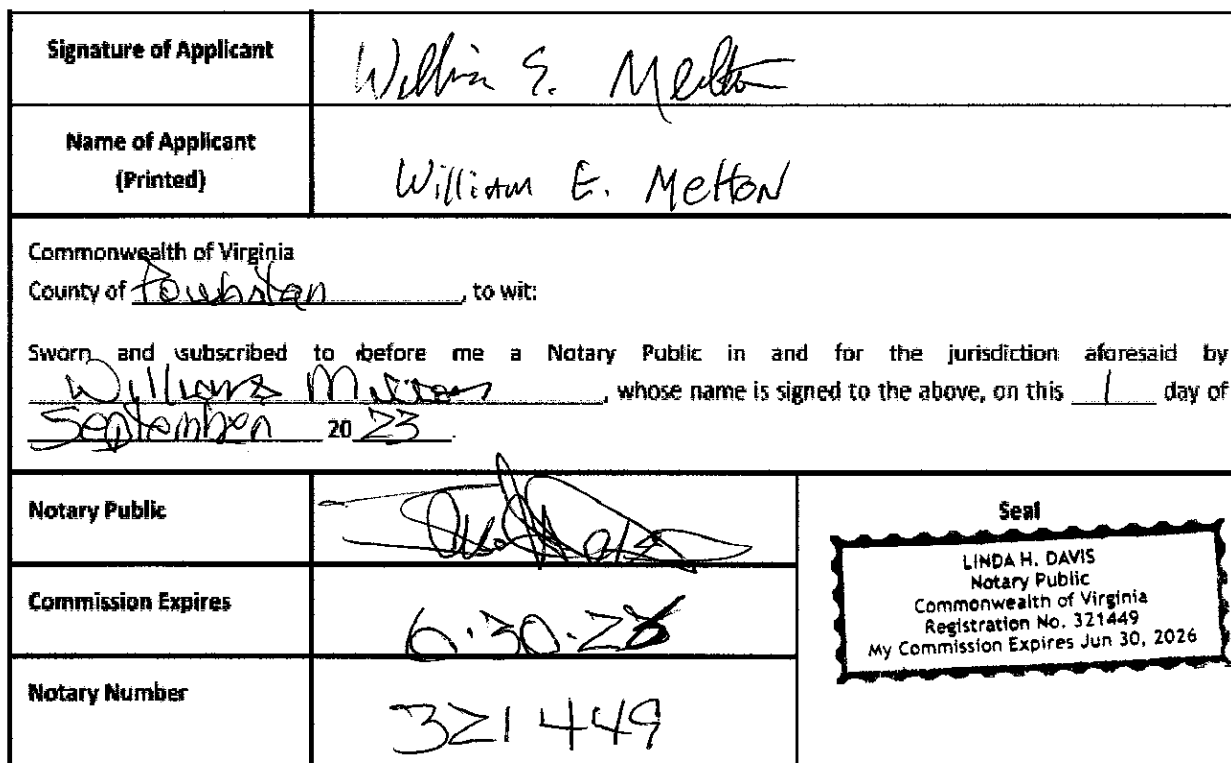 Signature of Applicant
William E. Melton
Name of Applicant
(Printed)
William E. Melton
Commonwealth of Virginia
County of Powhatan, to wit:
Sworn and subscribed to before me a Notary Public in and for the jurisdiction aforesaid by
William Melton, whose name is signed to the above, on this 1 day of
September 2023.
Notary Public
Commission Expires
6.30.26
Notary Number
321449
Seal
LINDA H. DAVIS
Notary Public
Commonwealth of Virginia
Registration No. 321449
My Commission Expires Jun 30, 2026